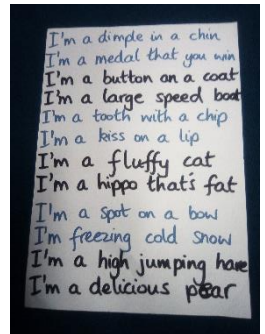 I'm a dimple in a chin
I'm a medal that you win
I'm a button on a coat
I'm a large speed boat
I'm a tooth with a chip
I'm a kiss on a lip
I'm a fluffy cat
I'm a hippo that's fat
I'm a spot on a bow
I'm freezing cold snow
I'm a high jumping hare
I'm a delicious pear